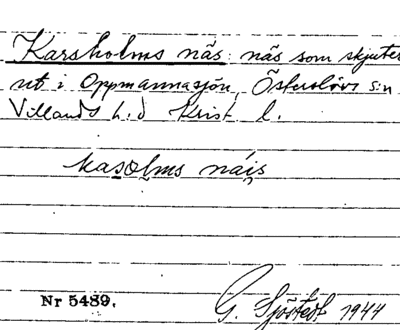 Karsholms näs: näs som skjuter
ut i Oppmannasjön, Österslövs s:n
Villands h:d Krist l.
kasolms näis
Nr 5489.
G. Sjöstedt 1944